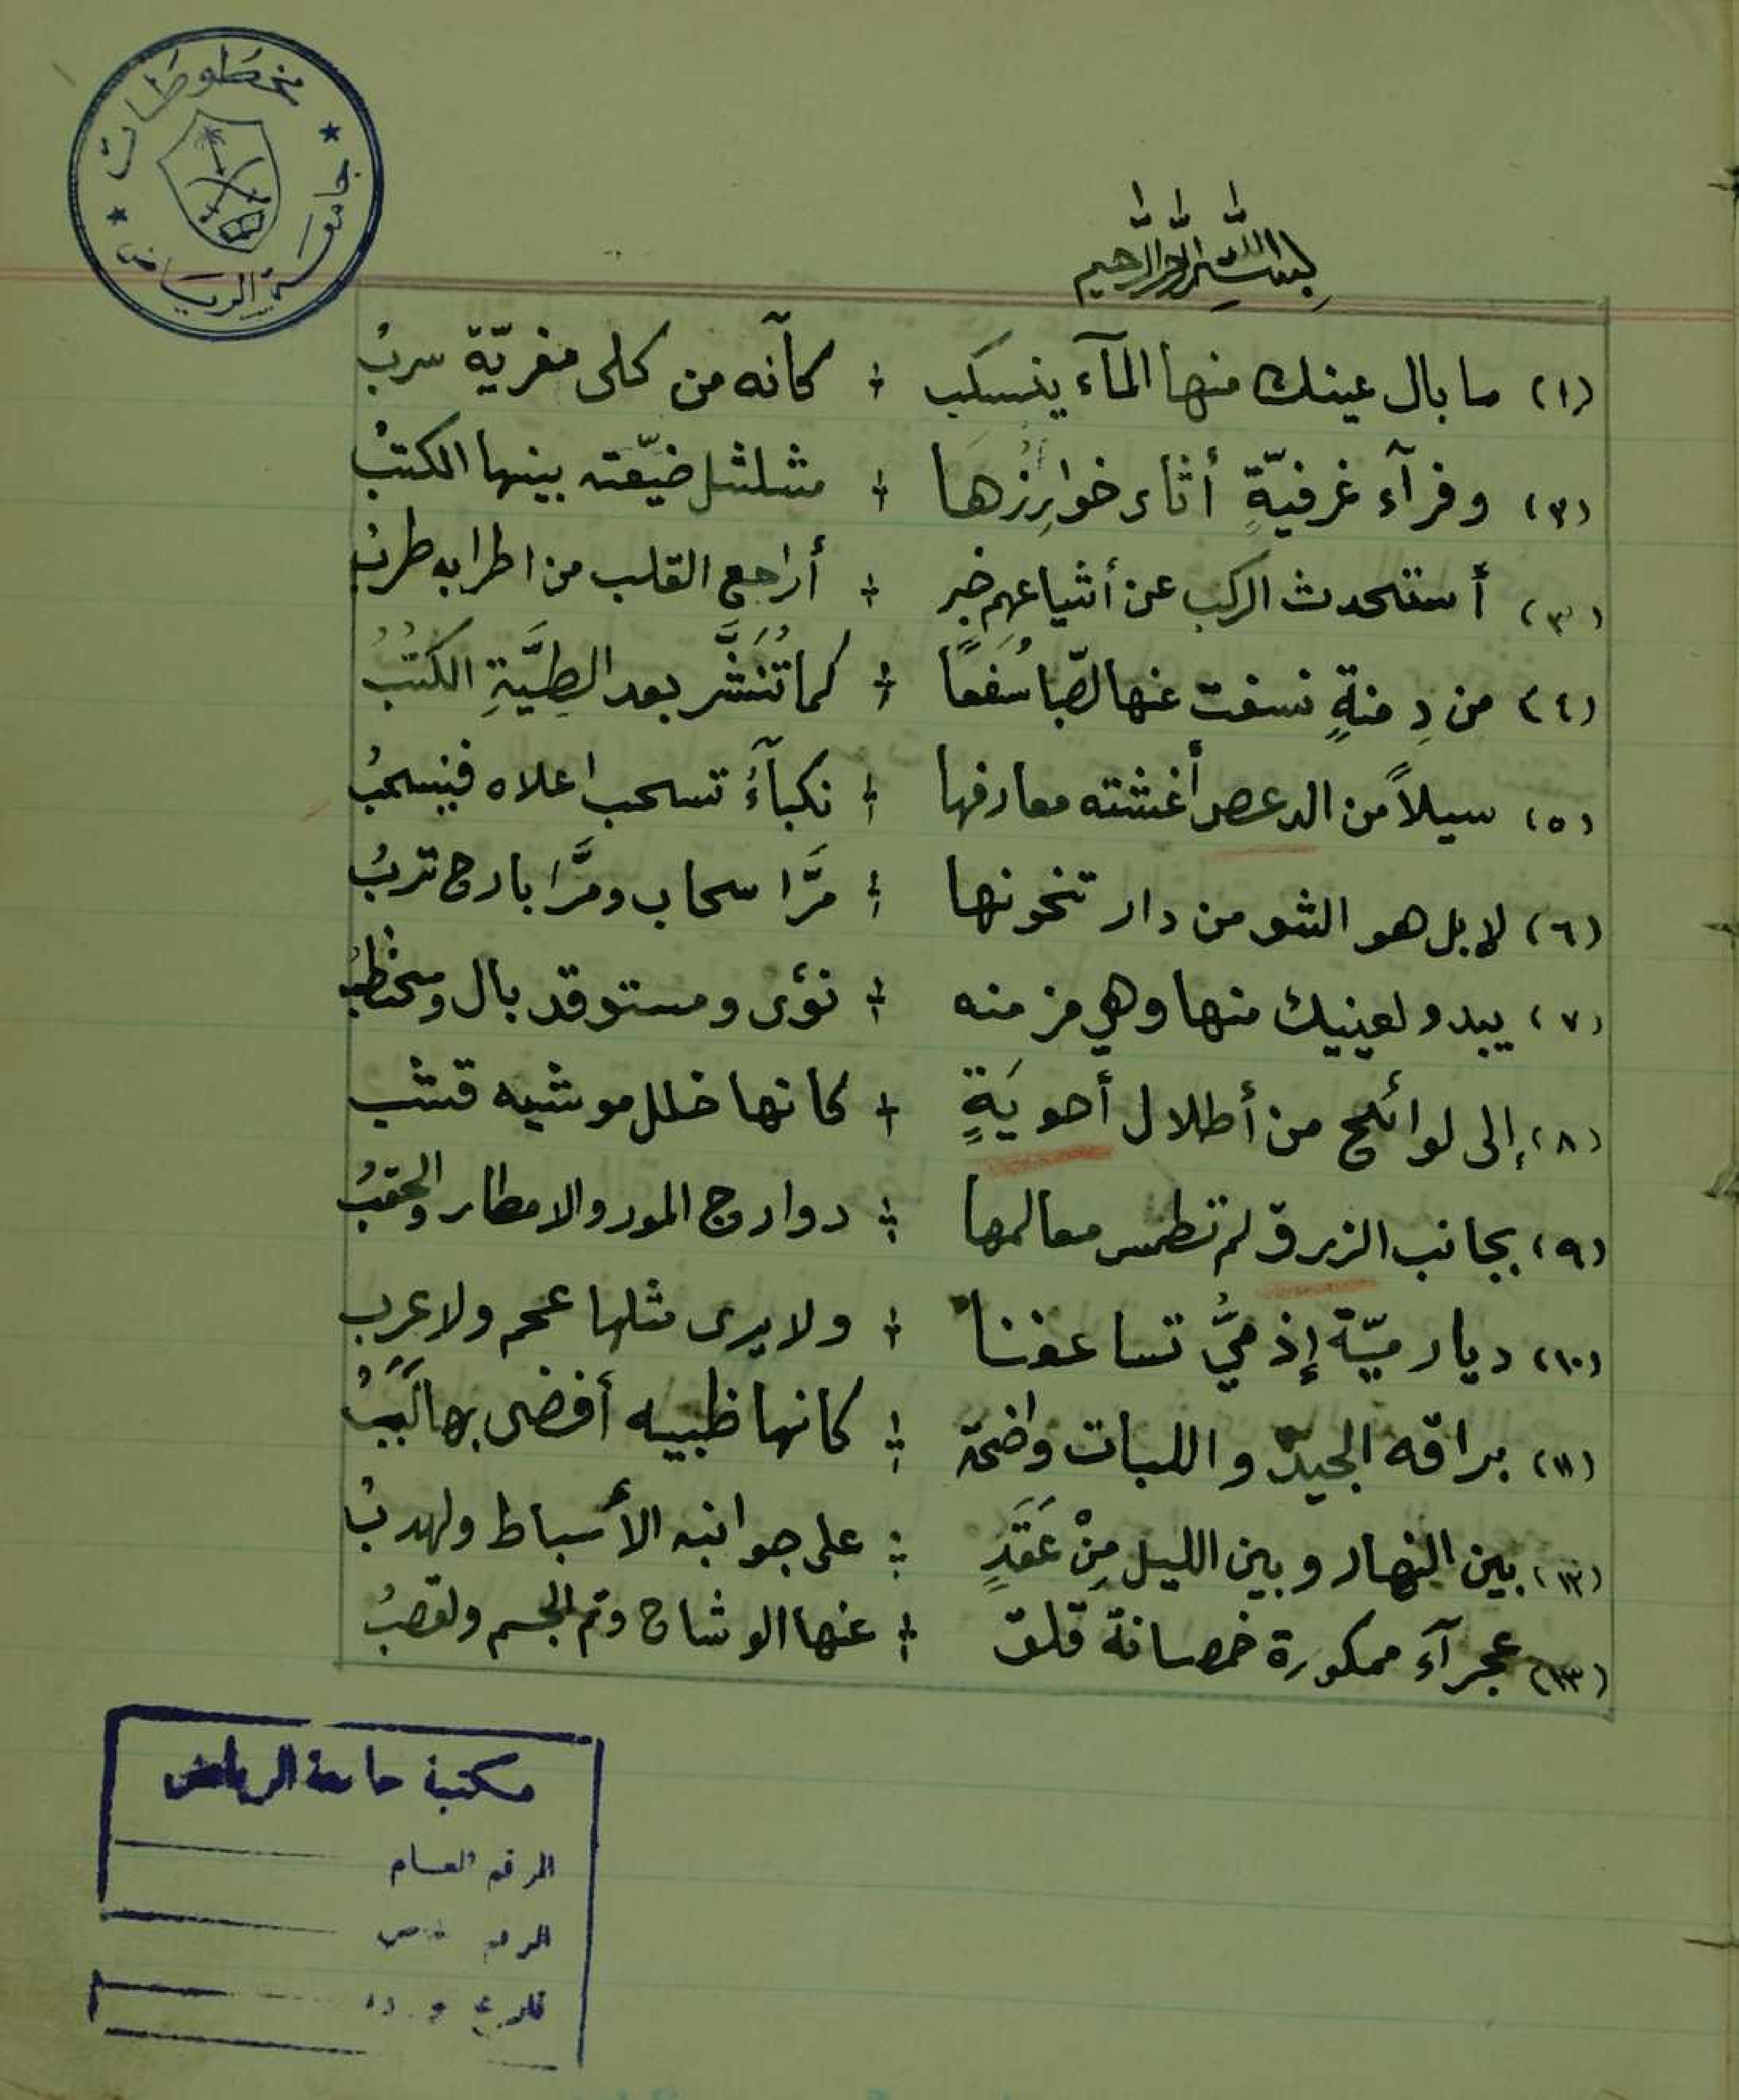 مخطوطات
جامعة الرياض
بسم الله الرحمن الرحيم
(١) ما بال عينك منها المآء ينسكب ÷ كأنه من كلى مفريّة سربُ
(٢) وفرآء غرفيّةٍ أثاى خوارِزُها ÷ مشلشل ضيّعته بينها الكتبُ
(٣) أستحدث الركب عن أشياعهم خبر ÷ أراجع القلب من اطرابه طربُ
(٤) من دِمنةٍ نسفت عنها الصّبا سُفَعًا ÷ كما تُنَشَّر بعد الطِيَّةِ الكتُبُ
(٥) سيلاً من الدعص أغشته معارفها ÷ نكبآءُ تسحب اعلاه فينسحبُ
(٦) لا بل هو الشو من دار تخونها ÷ مرَّا سحاب ومرَّا بارح تربُ
(٧) يبدو لعينيك منها وهي مزمنه ÷ نؤى ومستوقد بال ومحتطبُ
(٨) إلى لوائح من أطلال أحويَةٍ ÷ كانها خلل موشيه قشب
(٩) بجانب الزرق لم تطمس معالمها ÷ دوارج المور والامطار والحقبُ
(١٠) ديار ميّة إذ ميُّ تساعفنا ÷ ولا يرى مثلها عجم ولا عرب
(١١) براقه الجيد واللبات واضحة ÷ كانها ظبيه أفضى بها لَبَبُ
(١٢) بين النهار وبين الليل مِنْ عَقَدٍ ÷ على جوانبه الأسباط ولهدبُ
(١٣) عجرآء ممكورة خمصانة قلق ÷ عنها الوشاح وتم الجسم ولقصبُ
مكتبة جامعة الرياض
الرقم العام
الرقم